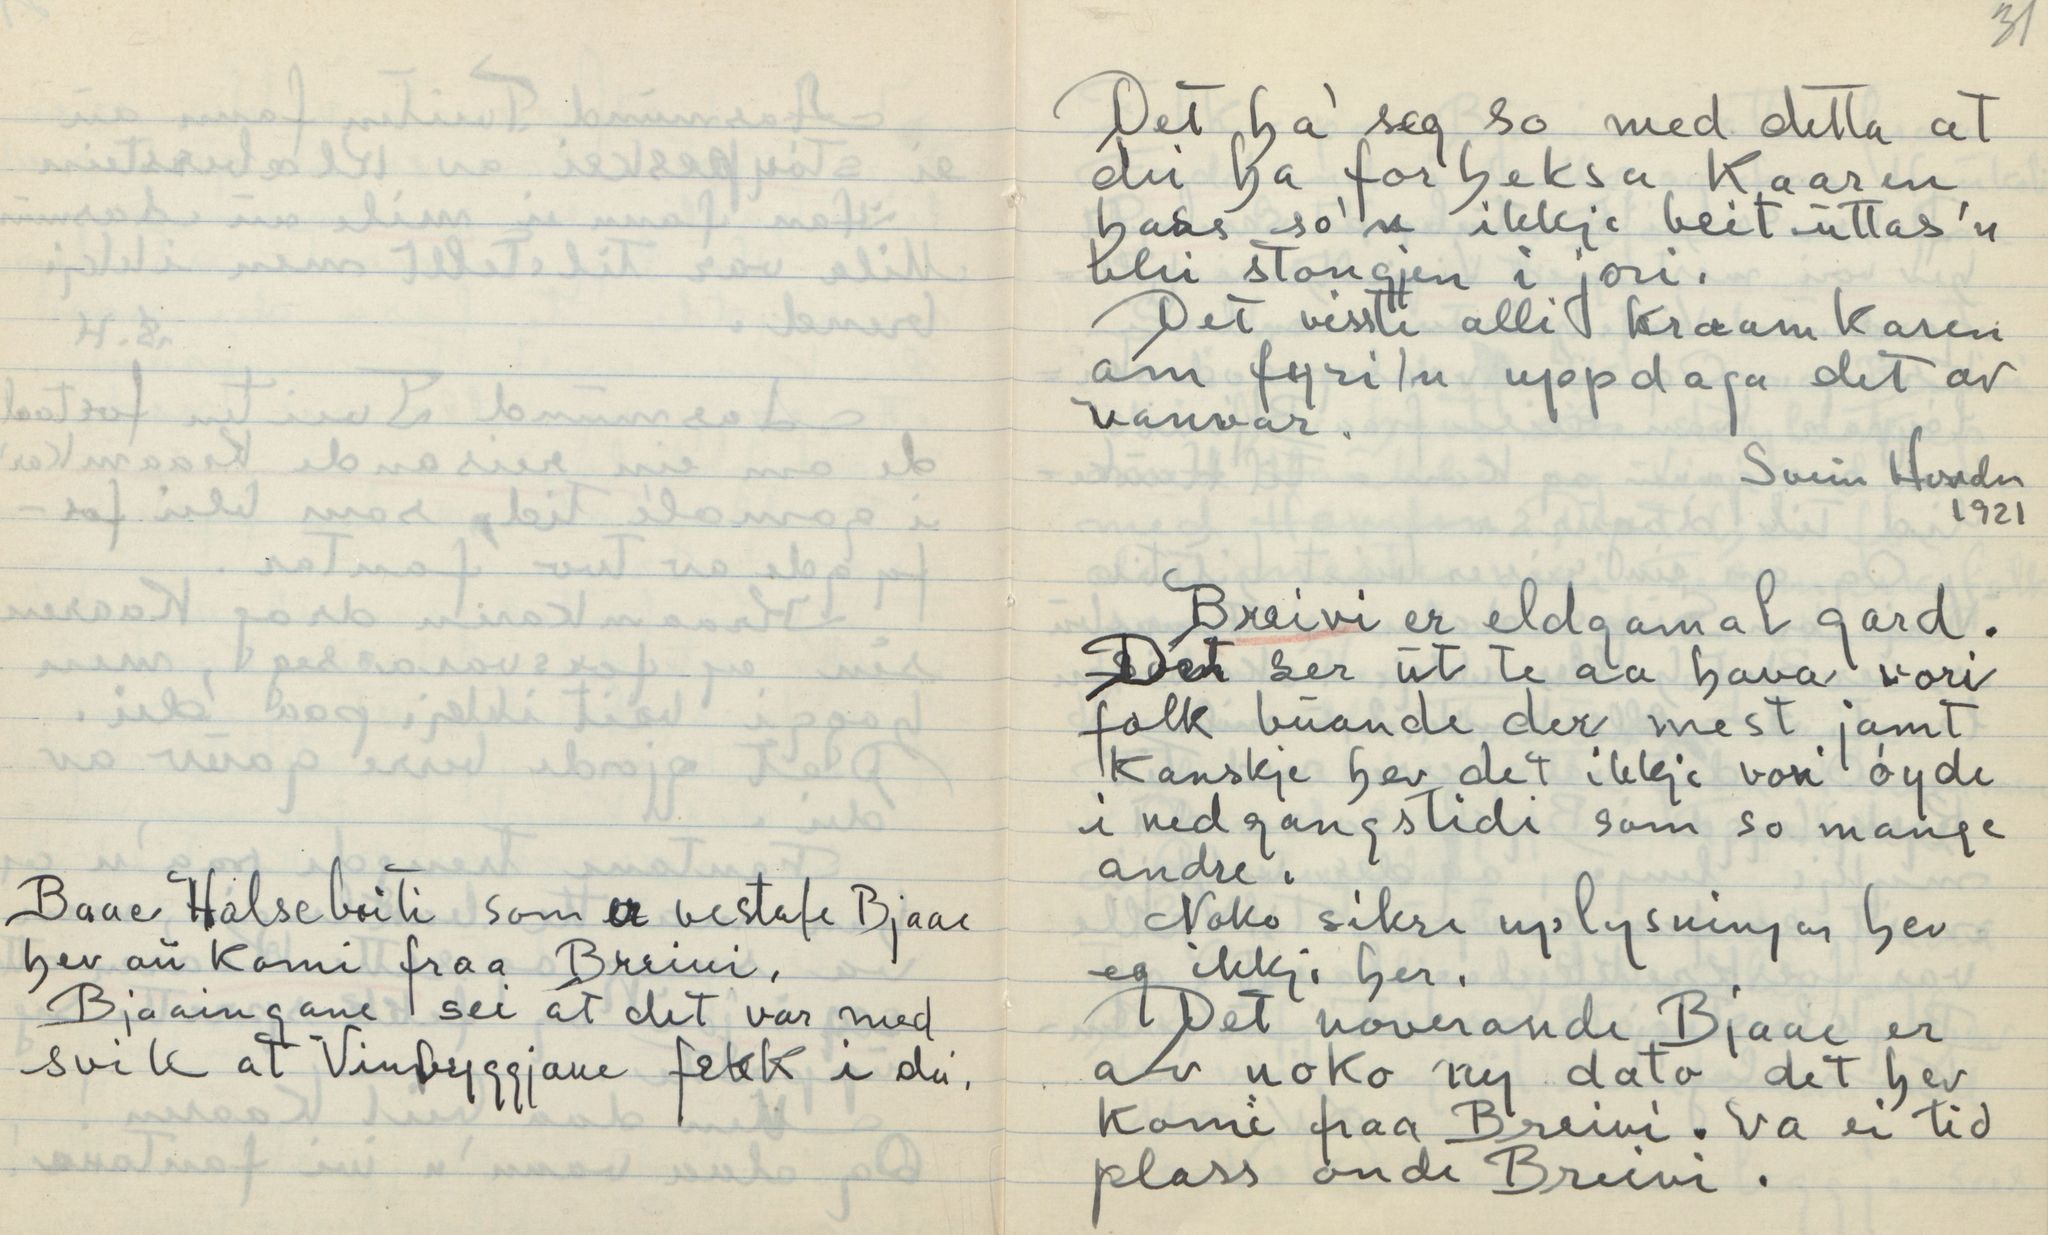 Baae Halsebviti som er vestafe Bjaae
hev aü komi fraa Breivi.
Bjaaingane sei at det var med
svik at Vinbyggjane fekk i dei.
31
Det ha' seg so med detta at
dei ha forheksa Kaaren
hass so'n ikkje beit üttas'n
blei stongjen i jori.
Det visste alli kraamkaren
om fyri'n uppdaga det av
vanvar.
Svein Hovden
1921
Breivi er eldgamal gard.
Det ser üt te aa hava vori
folk büande der mest jamt
Kanskje hev det ikkje vori öyde
i nedgangstidi som so mange
andre.
Noko sikre uplysningar hev
eg ikkje her.
Det noverande Bjaae er
av noko ny dato det hev
komi fraa Breivi. Va ei tid
plass onde Breivi.